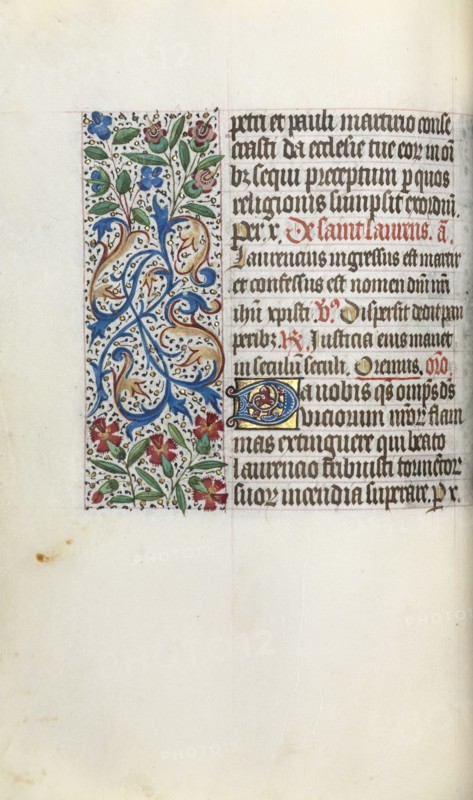 petri et pauli martirio conse
crasti da ecclesie tue eor in oi
bz sequi preceptum p quos
religionis sumpsit exordiū.
Per. x. De saint laurens. ā.
Laurencius ingressus est martir
et confessus est nomen dn̄i nr̄i
ihū xpisti. ℣. Dispersit dedit pau
peribz ℟. Iusticia eius manet
in seculū seculi. Oremus. orō.
Da nobis qs omps ds
viciorum nror flam
mas extinguere qui beato
laurencio tribuisti tormētor
suor incendia superare. P x.